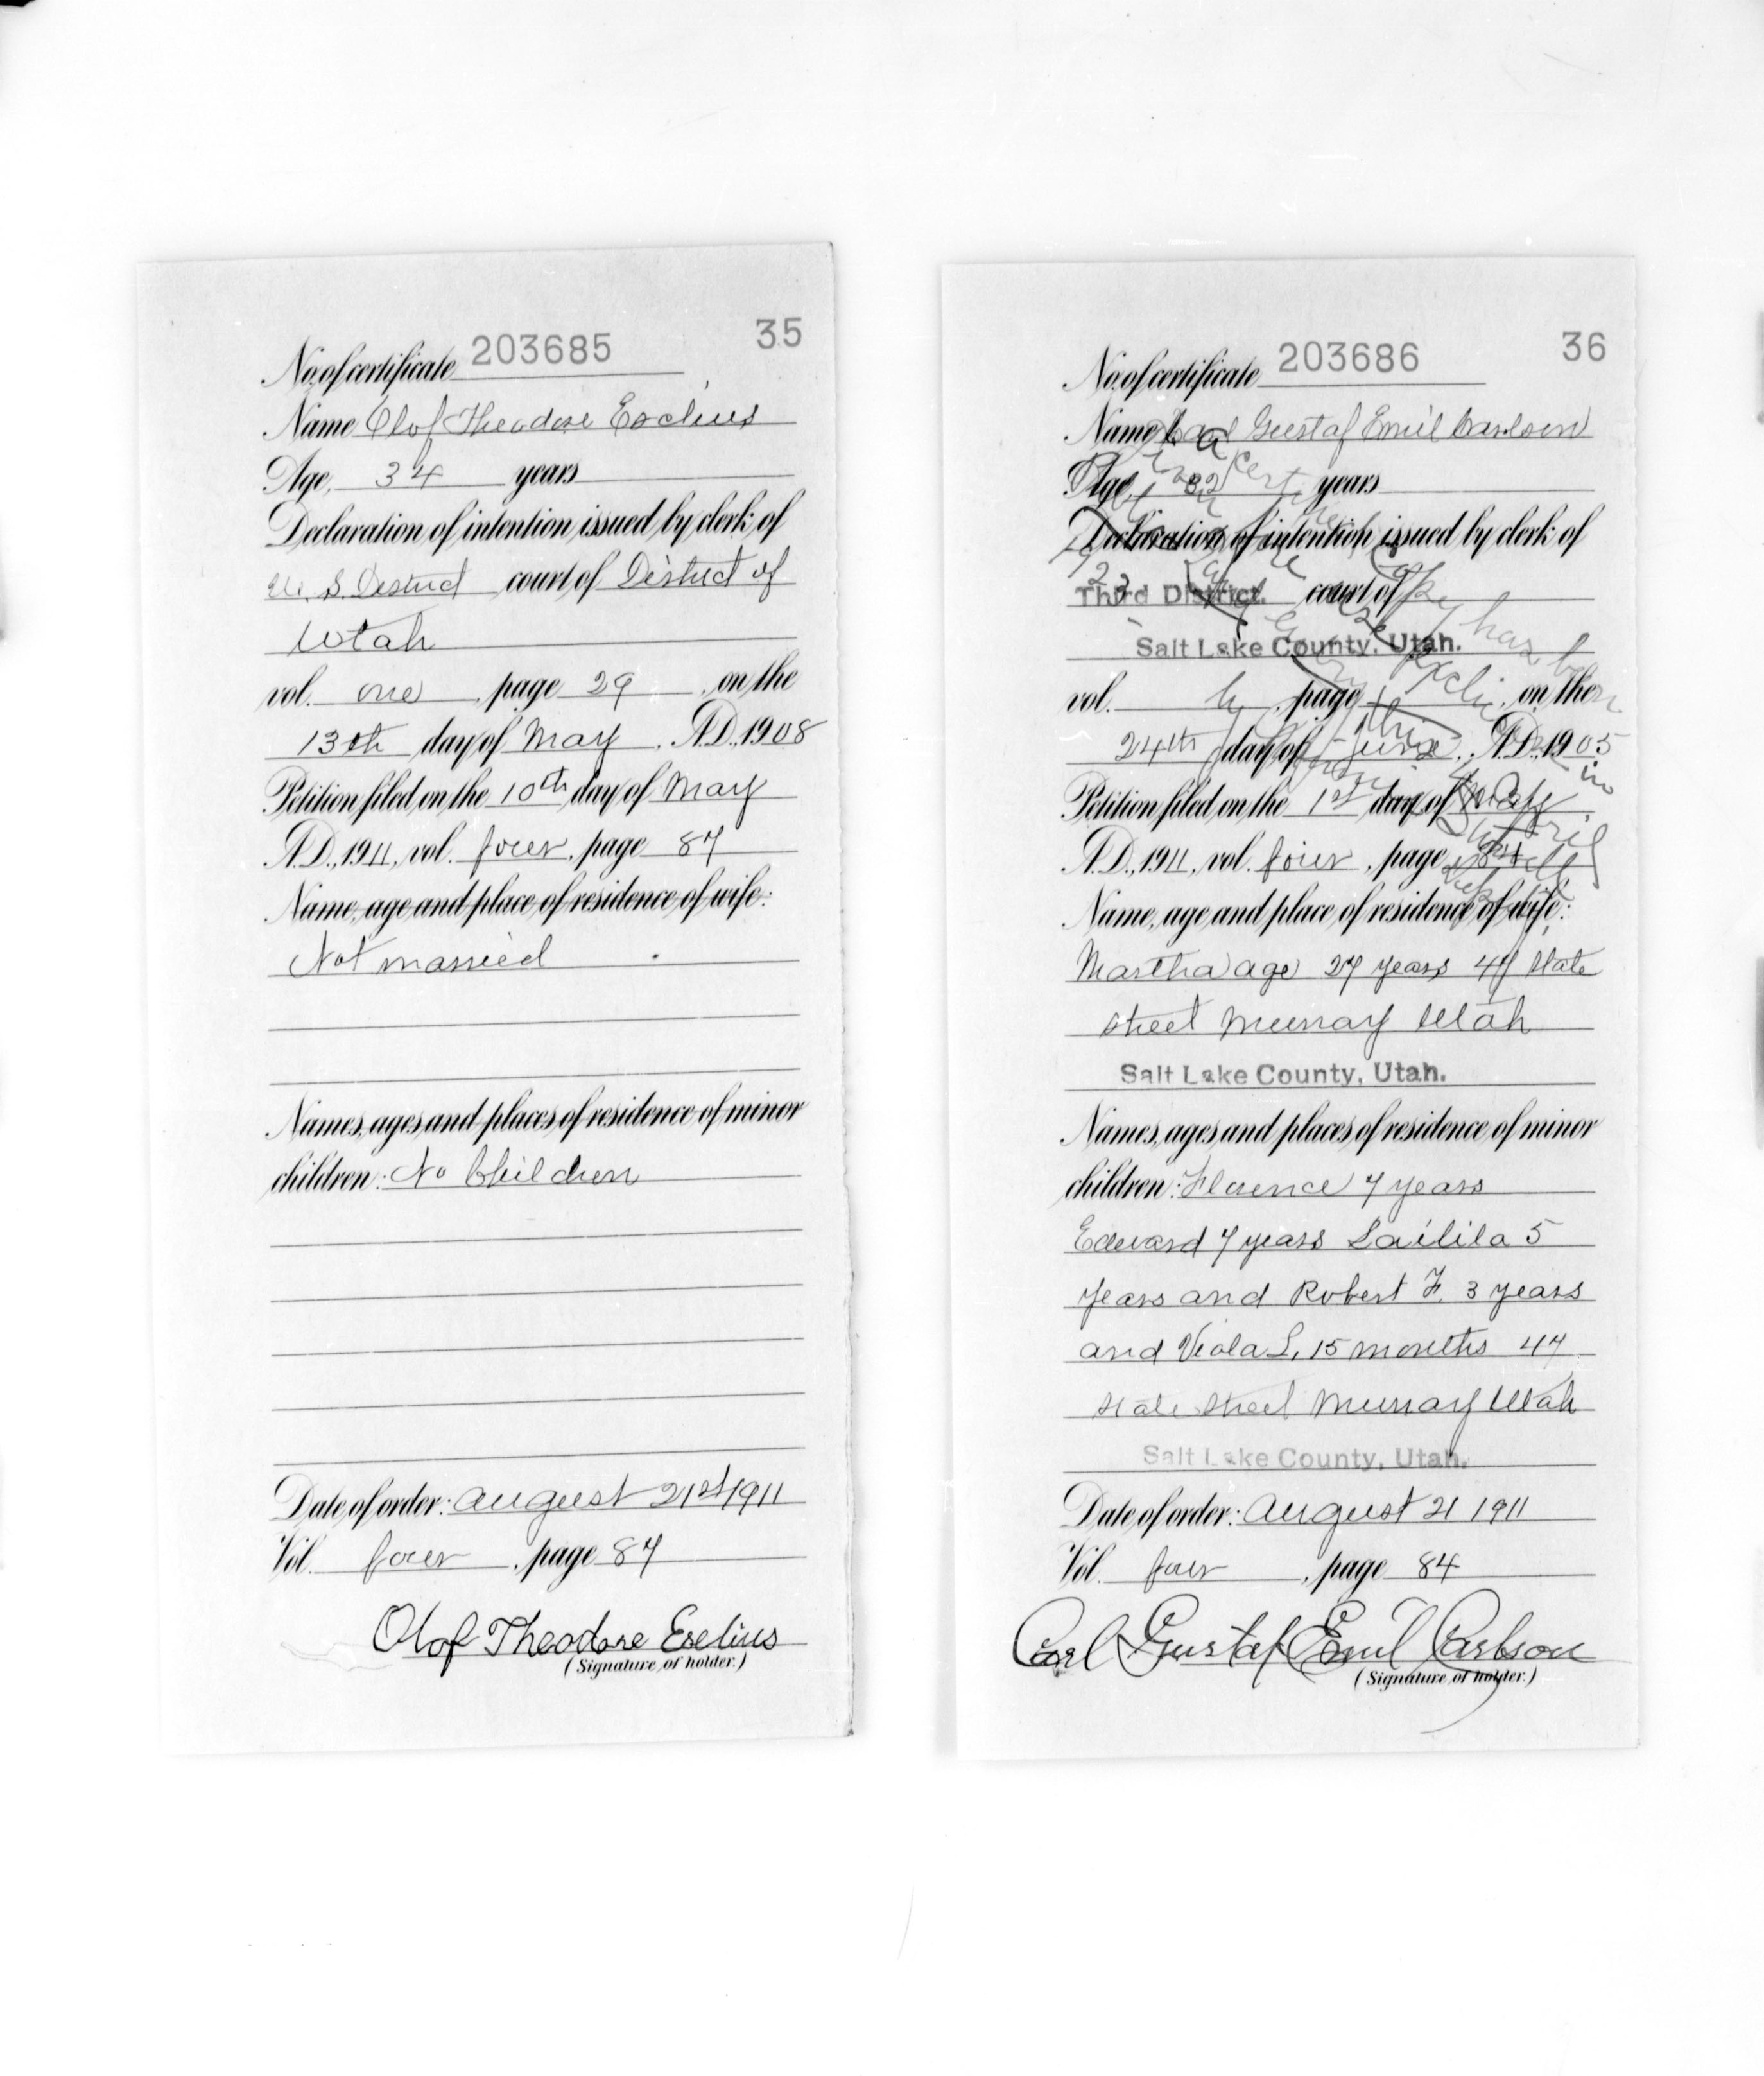 35
No. of certificate 203685
Name Olof Theodore Exelius
Age, 34 years
Declaration of intention issued by clerk of
U. S. District court of District of
Utah
vol. one, page 29, on the
13th day of May, A.D., 1908
Petition filed on the 10th day of May
A.D., 1911, vol. four, page 87
Name, age and place of residence of wife:
Not married
Names, ages and places of residence of minor
children: No Children
Date of order: August 21st 1911
Vol. four, page 87
Olof Theodore Exelius
(Signature of holder.)
36
No. of certificate 203686
Name Carl Gustaf Emil Carlson
Age, 32 years
Declaration of intention issued by clerk of
Third District. court of
Salt Lake County, Utah.
vol. page on the
24th day of June, A.D., 1905
Petition filed on the 1st day of May
A.D., 1911, vol. four, page 84
Name, age and place of residence of wife:
Martha age 27 years 47 State
Street Murray Utah
Salt Lake County, Utah.
Names, ages and places of residence of minor
children: Florence 7 years
Edward 7 years Lailila 5
years and Robert F. 3 years
and Viola L, 15 months 47
State Street Murray Utah
Salt Lake County, Utah.
Date of order: August 21 1911
Vol. four, page 84
Carl Gustaf Emil Carlson
(Signature of holder.)